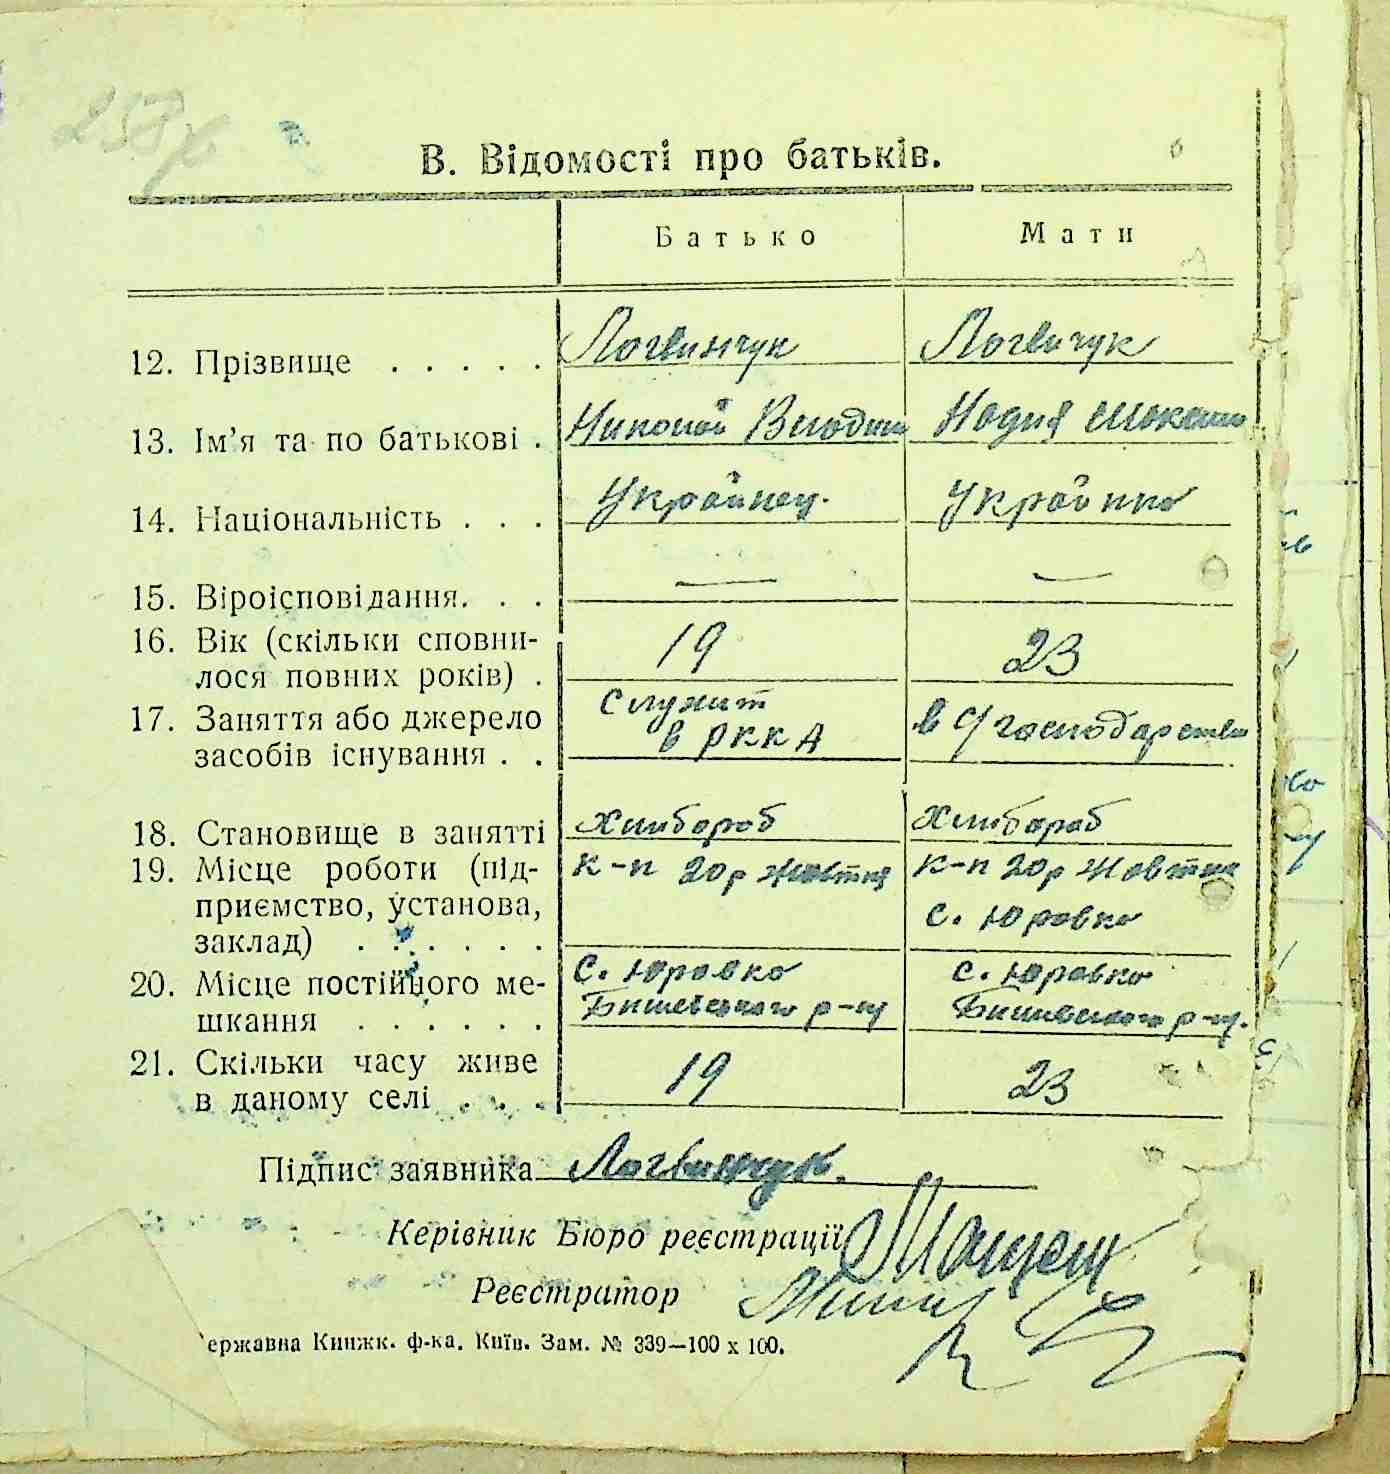 В. Відомості про батьків.
Батько Мати
12. Прізвище . . . . . Логвинчук Логвичук
13. Ім'я та по батькові . Николай Надия
14. Національність . . . Украйнец. Украйнка
15. Віроісповідання. . . — —
16. Вік (скільки сповни-
лося повних років) . 19 23
17. Заняття або джерело Служит
засобів існування . . в РККА в с/господарстви
18. Становище в занятті Хлибороб Хлибораб
19. Місце роботи (під- к-п 20р Жовтня к-п 20р Жовтня
приємство, установа, с. Юровка
заклад) . . . . . .
20. Місце постійного ме- с. Юровка с. Юровка
шкання . . . . . . Бишевського р-ну Бишевського р-ну.
21. Скільки часу живе
в даному селі . . . 19 23
Підпис заявника Логвинчук.
Керівник Бюро реєстрації
Реєстратор
ержавна Книжк. ф-ка. Київ. Зам. № 339—100 х 100.